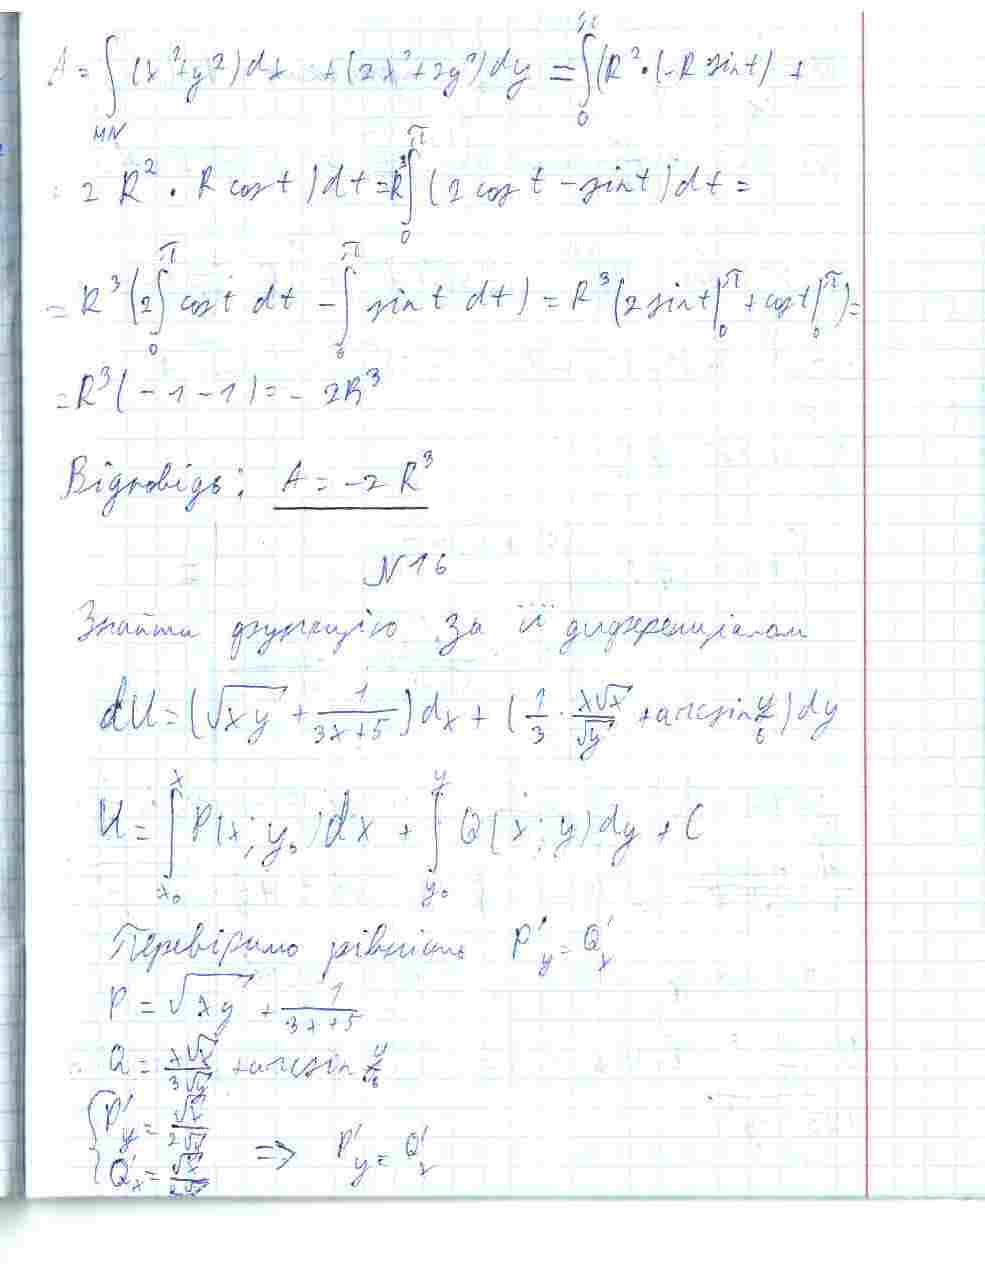 A = ∫ (x²+y²)dx + (2x²+2y²)dy = ∫₀^π (R²·(-R sint) +
MN
2R²·R cost)dt = R³∫₀^π (2cost - sint)dt =
= R³(2∫₀^π cost dt - ∫₀^π sint dt) = R³(2sint|₀^π + cost|₀^π) =
= R³(-1-1) = -2R³
Відповідь: A = -2R³
N16
Знайти функцію за її диференціалом
dU = (√xy + 1/(3x+5))dx + (1/3 · x√x/√y + arcsin y/6)dy
U = ∫_{x₀}^{x} P(x; y₀)dx + ∫_{y₀}^{y} Q(x; y)dy + C
Перевіримо рівність P'y = Q'x
P = √xy + 1/(3x+5)
Q = x√x/(3√y) + arcsin y/6
P'y = √x/(2√y)
⇒ P'y = Q'x
Q'x = √x/(2√y)